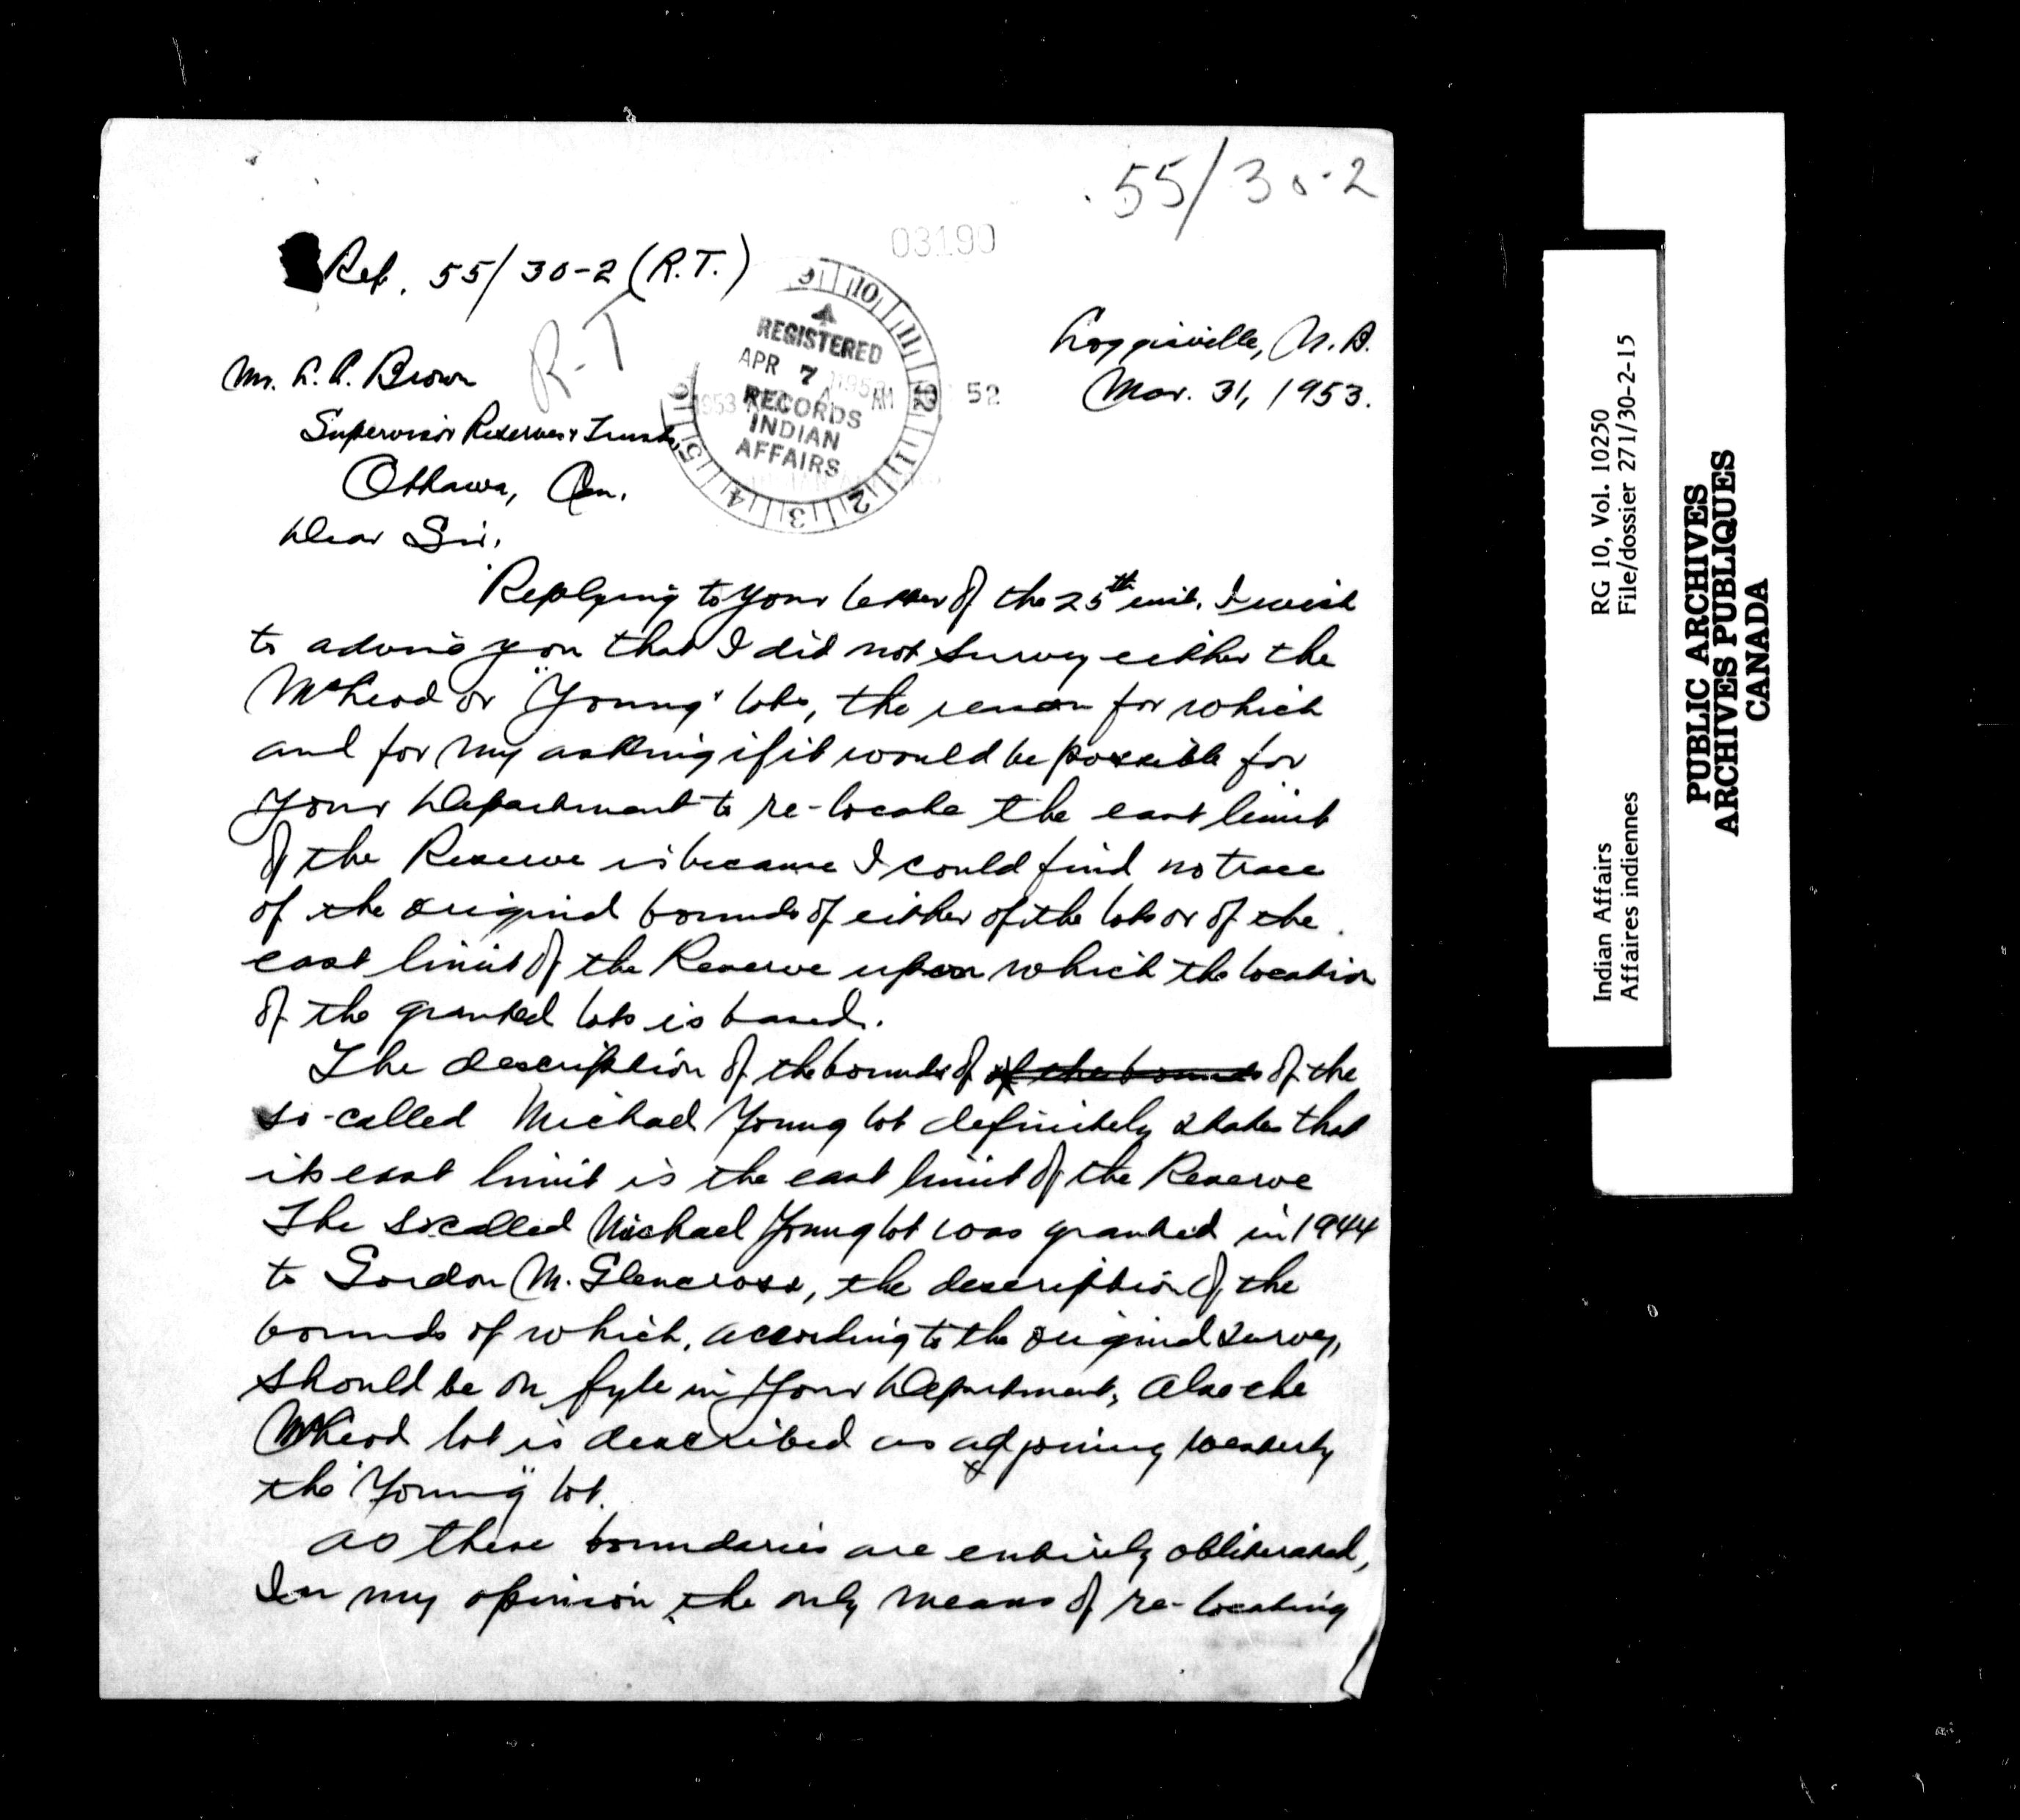 55/30-2
03190
Ref. 55/30-2 (R.T.)
R-T
Loggieville, N.B.
Mar. 31, 1953.
9 10 11 12 1 2 3 4 5
REGISTERED
APR 7 1953
AM
RECORDS
INDIAN
AFFAIRS
52
Mr. L. L. Brown
Supervisor Reserves & Trusts,
Ottawa, On.
Dear Sir,
Replying to your letter of the 25th ult. I wish
to advise you that I did not survey either the
McLeod or "Young" lots, the reason for which
and for my asking if it would be possible for
your Department to re-locate the east limit
of the Reserve is because I could find no trace
of the original bounds of either of the lots or of the
east limit of the Reserve upon which the location
of the granted lots is based.
The description of the bounds of of the bounds of the
so-called Michael Young lot definitely states that
its east limit is the east limit of the Reserve
The so called Michael Young lot was granted in 1944
to Gordon M. Glencross, the description of the
bounds of which, according to the original survey,
should be on fyle in your Department, Also the
McLeod lot is described as adjoining westerly
the "Young" lot.
As these boundaries are entirely obliterated,
In my opinion, the only means of re-locating
RG 10, Vol. 10250
File/dossier 271/30-2-15
Indian Affairs
Affaires indiennes
PUBLIC ARCHIVES
ARCHIVES PUBLIQUES
CANADA